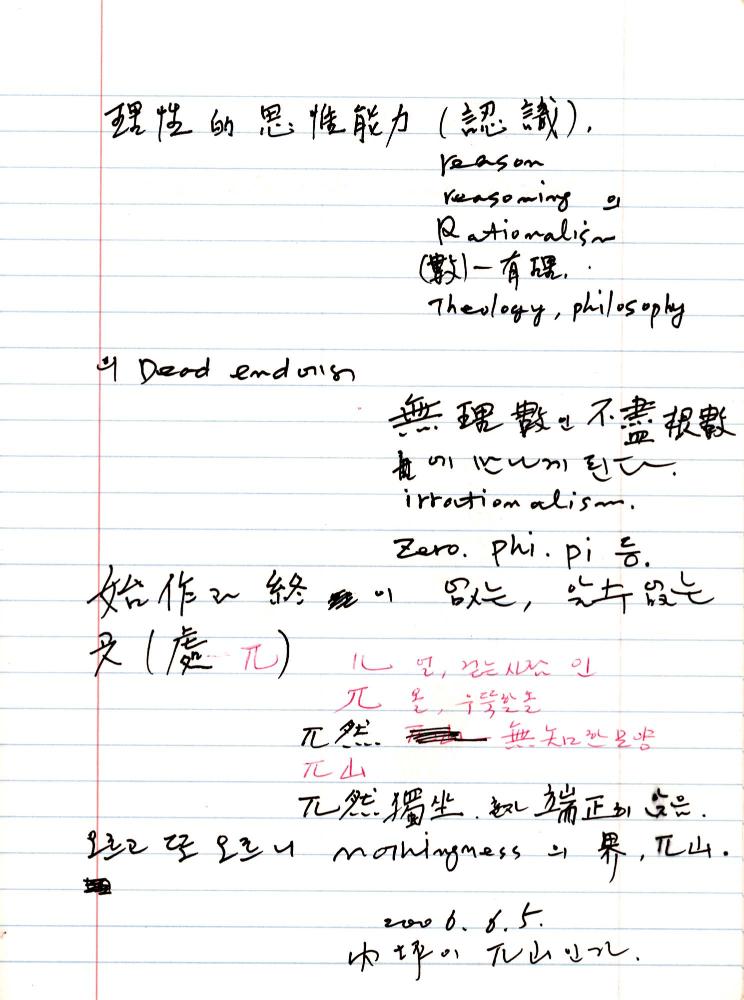 理性的 思惟能力 (認識).
reason
reasoning 의
Rationalism
(數)一有理.
Theology, philosophy
의 Dead end에서
無理數인 不盡根數
에 만나게 된다.
irrationalism.
Zero. phi. pi 등.
始作과 終이 없는, 알수 없는
곳 (處 兀)
儿 얼, 걷는사람 인
兀 올, 우뚝할올
兀然 無知한모양
兀山
兀然獨坐. 혼자 端正히 앉음.
오르고 또 오르니 nothingness 의 界, 兀山.
2006. 6. 5.
内坪이 兀山인가.